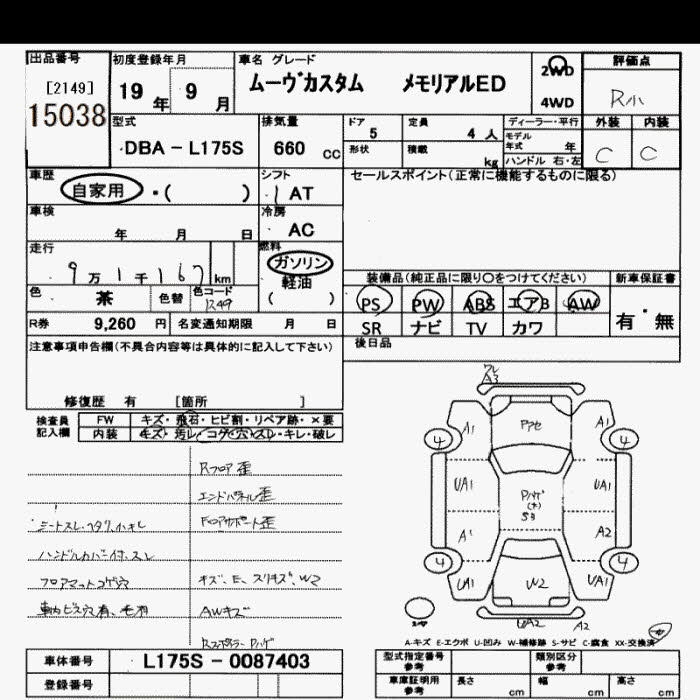 出品番号 初度登録年月 車名 グレード 2WD 評価点
[2149] 19年 9月 ムーヴカスタム メモリアルED 4WD R小
15038
型式 排気量 ドア 定員 ディーラー・平行 外装 内装
DBA-L175S 660cc 5 4人 モデル年式 年 C C
形状 積載 kg ハンドル 右・左
車歴 シフト セールスポイント(正常に機能するものに限る)
自家用・( ) AT
車検 冷房
年 月 日 AC
走行 燃料
9万1千167km ガソリン
軽油
( )
装備品(純正品に限り○をつけてください) 新車保証書
色 茶 色替 色コード PS PW ABS エアB AW 有・無
R券 9,260円 名変通知期限 月 日 SR ナビ TV カワ
注意事項申告欄(不具合内容等は具体的に記入して下さい) 後日品
修復歴 有 [箇所 ]
検査員 FW キズ・飛石・ヒビ割・リペア跡・×要
記入欄 内装 キズ・汚レ・コゲ・穴・スレ・キレ・破レ
Rフロア歪
エンドパネル歪
シートスレ
ハンドルカバー付、スレ
フロアマットコゲ穴 キズ、E、スリキズ、W2
AWキズ
A3
A1 A1
4 4
UA1 UA1
A1 A2
4 4
UA1 W2 UA1
UA2 A2
A-キズ E-エクボ U-凹み W-補修跡 S-サビ C-腐食 XX-交換済
車体番号 L175S-0087403 型式指定番号 参考 類別区分 参考
登録番号 車庫証明用 参考 長さ cm 幅 cm 高さ cm